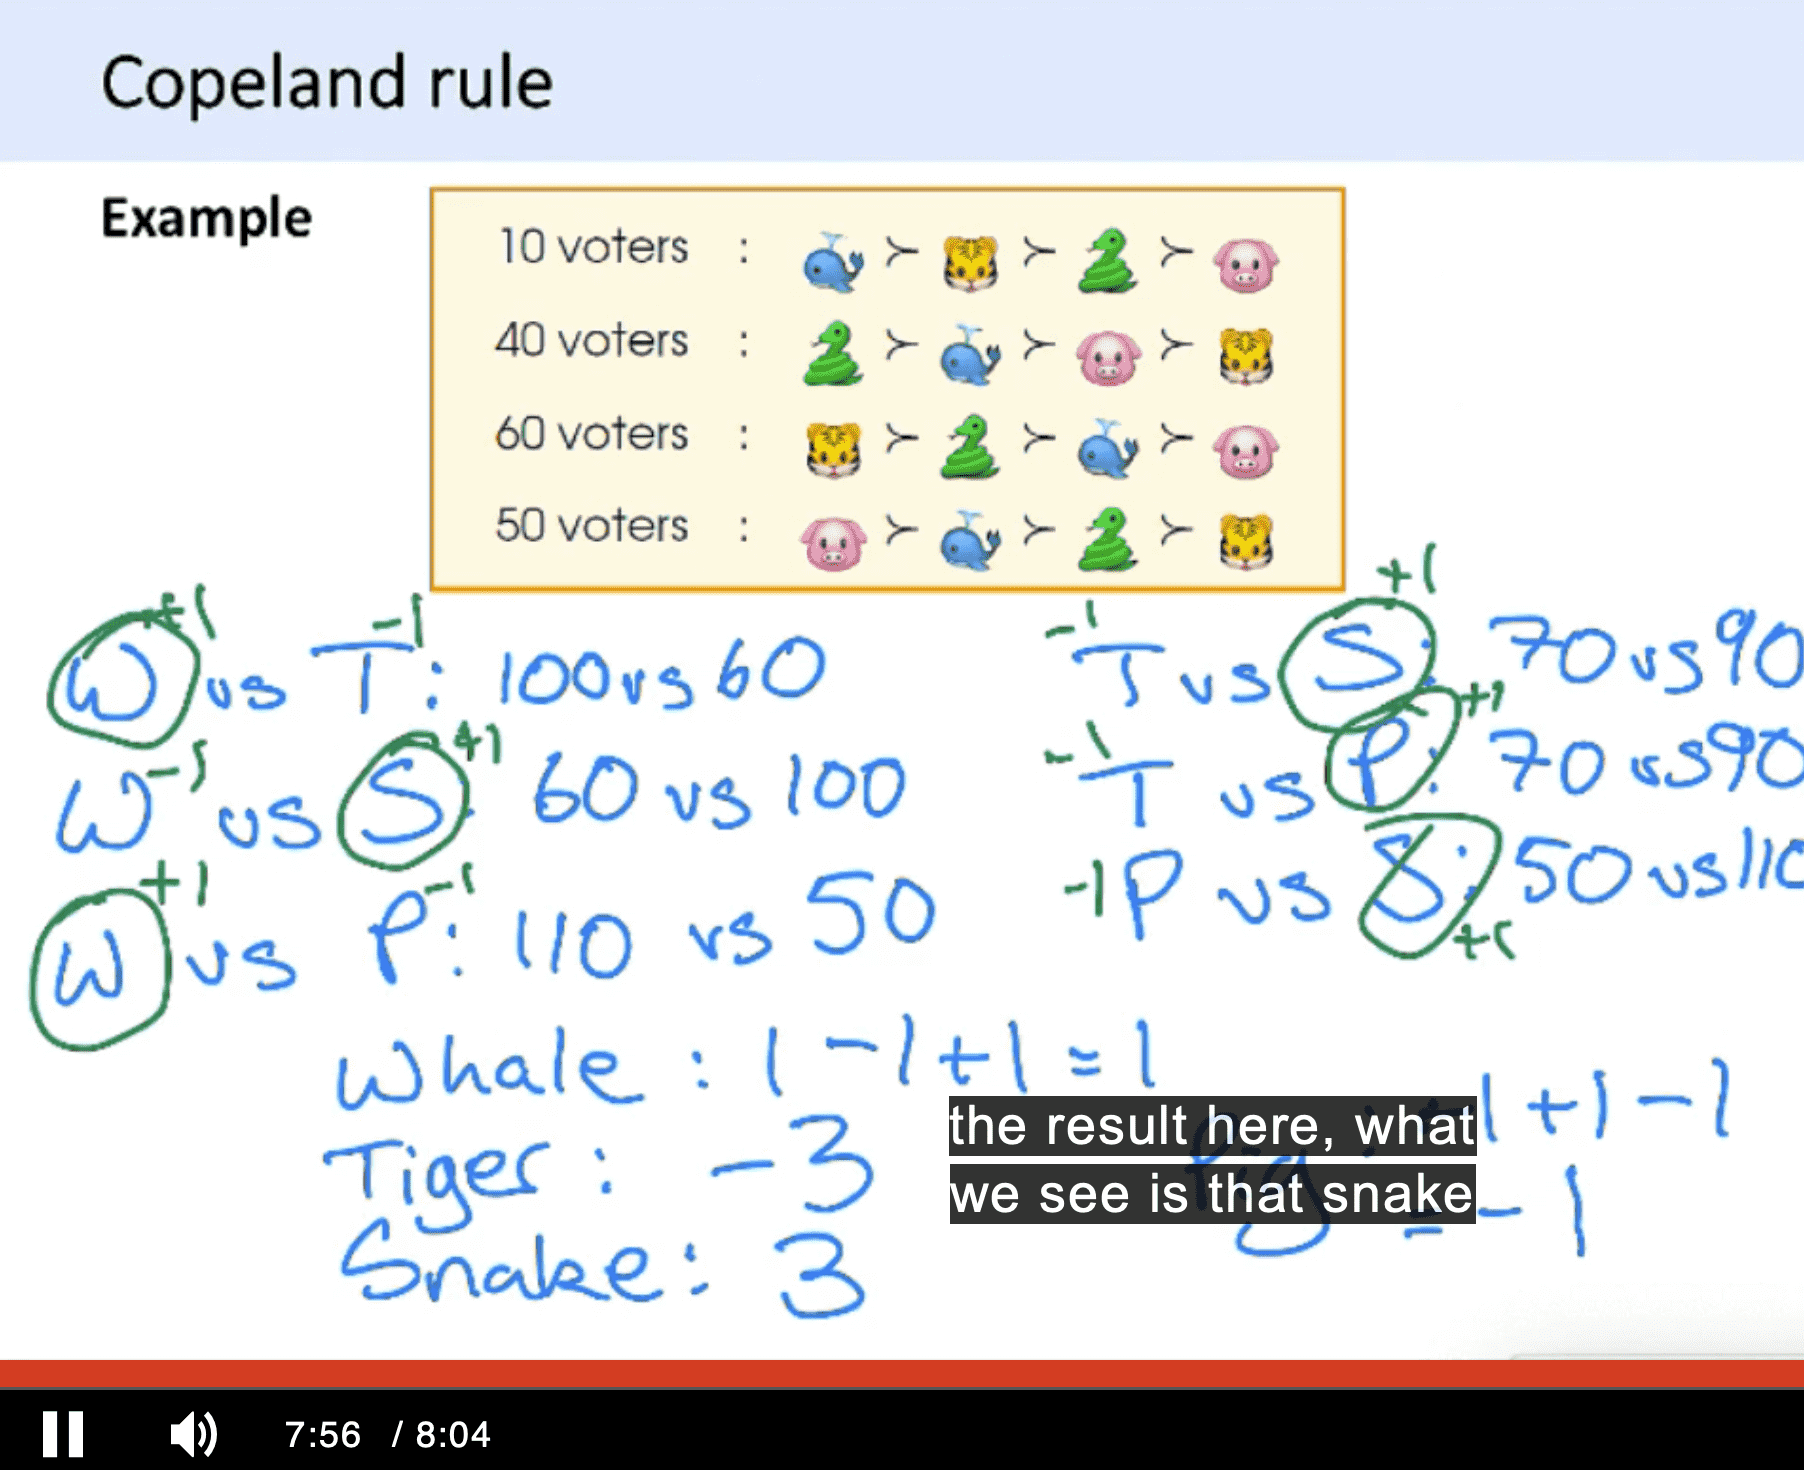 Copeland rule
Example
10 voters : ≻ ≻ ≻
40 voters : ≻ ≻ ≻
60 voters : ≻ ≻ ≻
50 voters : ≻ ≻ ≻
+1 -1
W vs T: 100 vs 60
-1 +1
W vs S: 60 vs 100
+1 -1
W vs P: 110 vs 50
-1 +1
T vs S: 70 vs 90
-1 +1
T vs P: 70 vs 90
-1 P vs S: 50 vs 110
+1
Whale : 1 -1 +1 = 1
Tiger : -3
Snake : 3
Pig : -1 +1 -1
= -1
the result here, what
we see is that snake
7:56 / 8:04